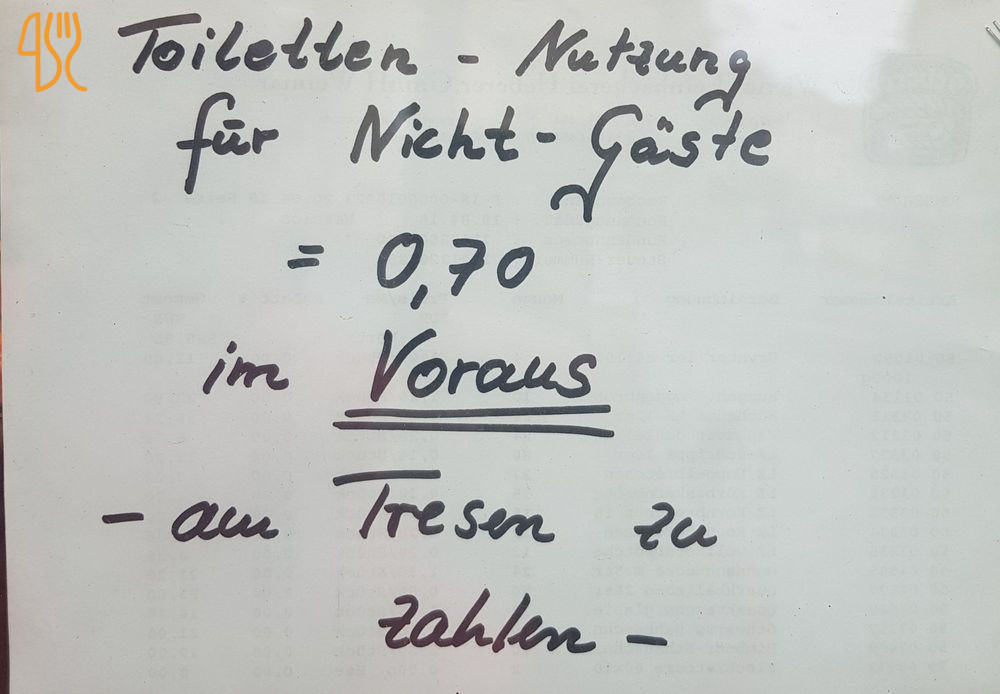 Toiletten - Nutzung
für Nicht-Gäste
= 0,70
im Voraus
- am Tresen zu
zahlen -